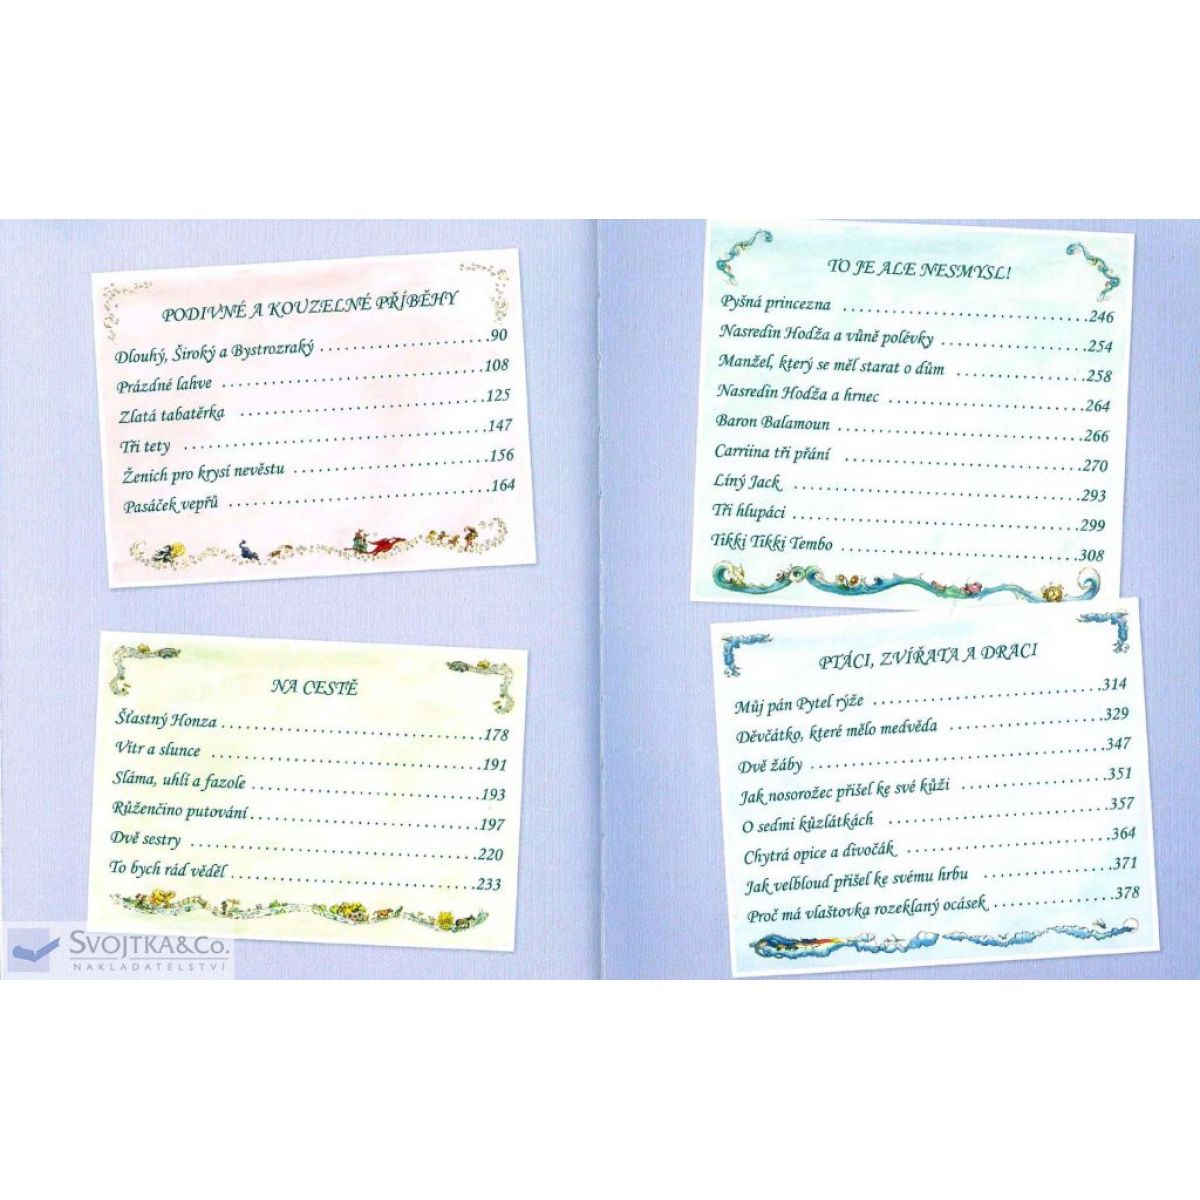 PODIVNÉ A KOUZELNÉ PŘÍBĚHY
Dlouhý, Široký a Bystrozraký ........................90
Prázdné lahve ........................108
Zlatá tabatěrka ........................125
Tři tety ........................147
Ženich pro krysí nevěstu ........................156
Pasáček vepřů ........................164
NA CESTĚ
Šťastný Honza ........................178
Vítr a slunce ........................191
Sláma, uhlí a fazole ........................193
Růženčino putování ........................197
Dvě sestry ........................220
To bych rád věděl ........................233
TO JE ALE NESMYSL!
Pyšná princezna ........................246
Nasredin Hodža a vůně polévky ........................254
Manžel, který se měl starat o dům ........................258
Nasredin Hodža a hrnec ........................264
Baron Balamoun ........................266
Carriina tři přání ........................270
Líný Jack ........................293
Tři hlupáci ........................299
Tikki Tikki Tembo ........................308
PTÁCI, ZVÍŘATA A DRACI
Můj pán Pytel rýže ........................314
Děvčátko, které mělo medvěda ........................329
Dvě žáby ........................347
Jak nosorožec přišel ke své kůži ........................351
O sedmi kůzlátkách ........................357
Chytrá opice a divočák ........................364
Jak velbloud přišel ke svému hrbu ........................371
Proč má vlaštovka rozeklaný ocásek ........................378
SVOJTKA&CO.
NAKLADATELSTVÍ